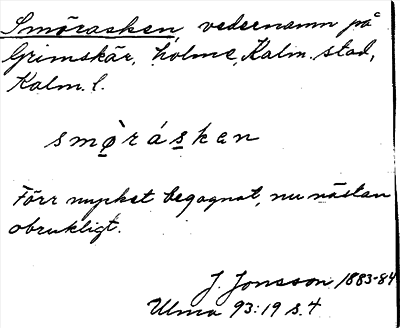 Smörasken, vedernamn på
Grimskär, holme, Kalm. stad,
Kalm. l.
smø̀ráskan
Förr mycket begagnat, nu nästan
obrukligt.
J. Jonsson 1883-84
Ulma 93:19 s. 4